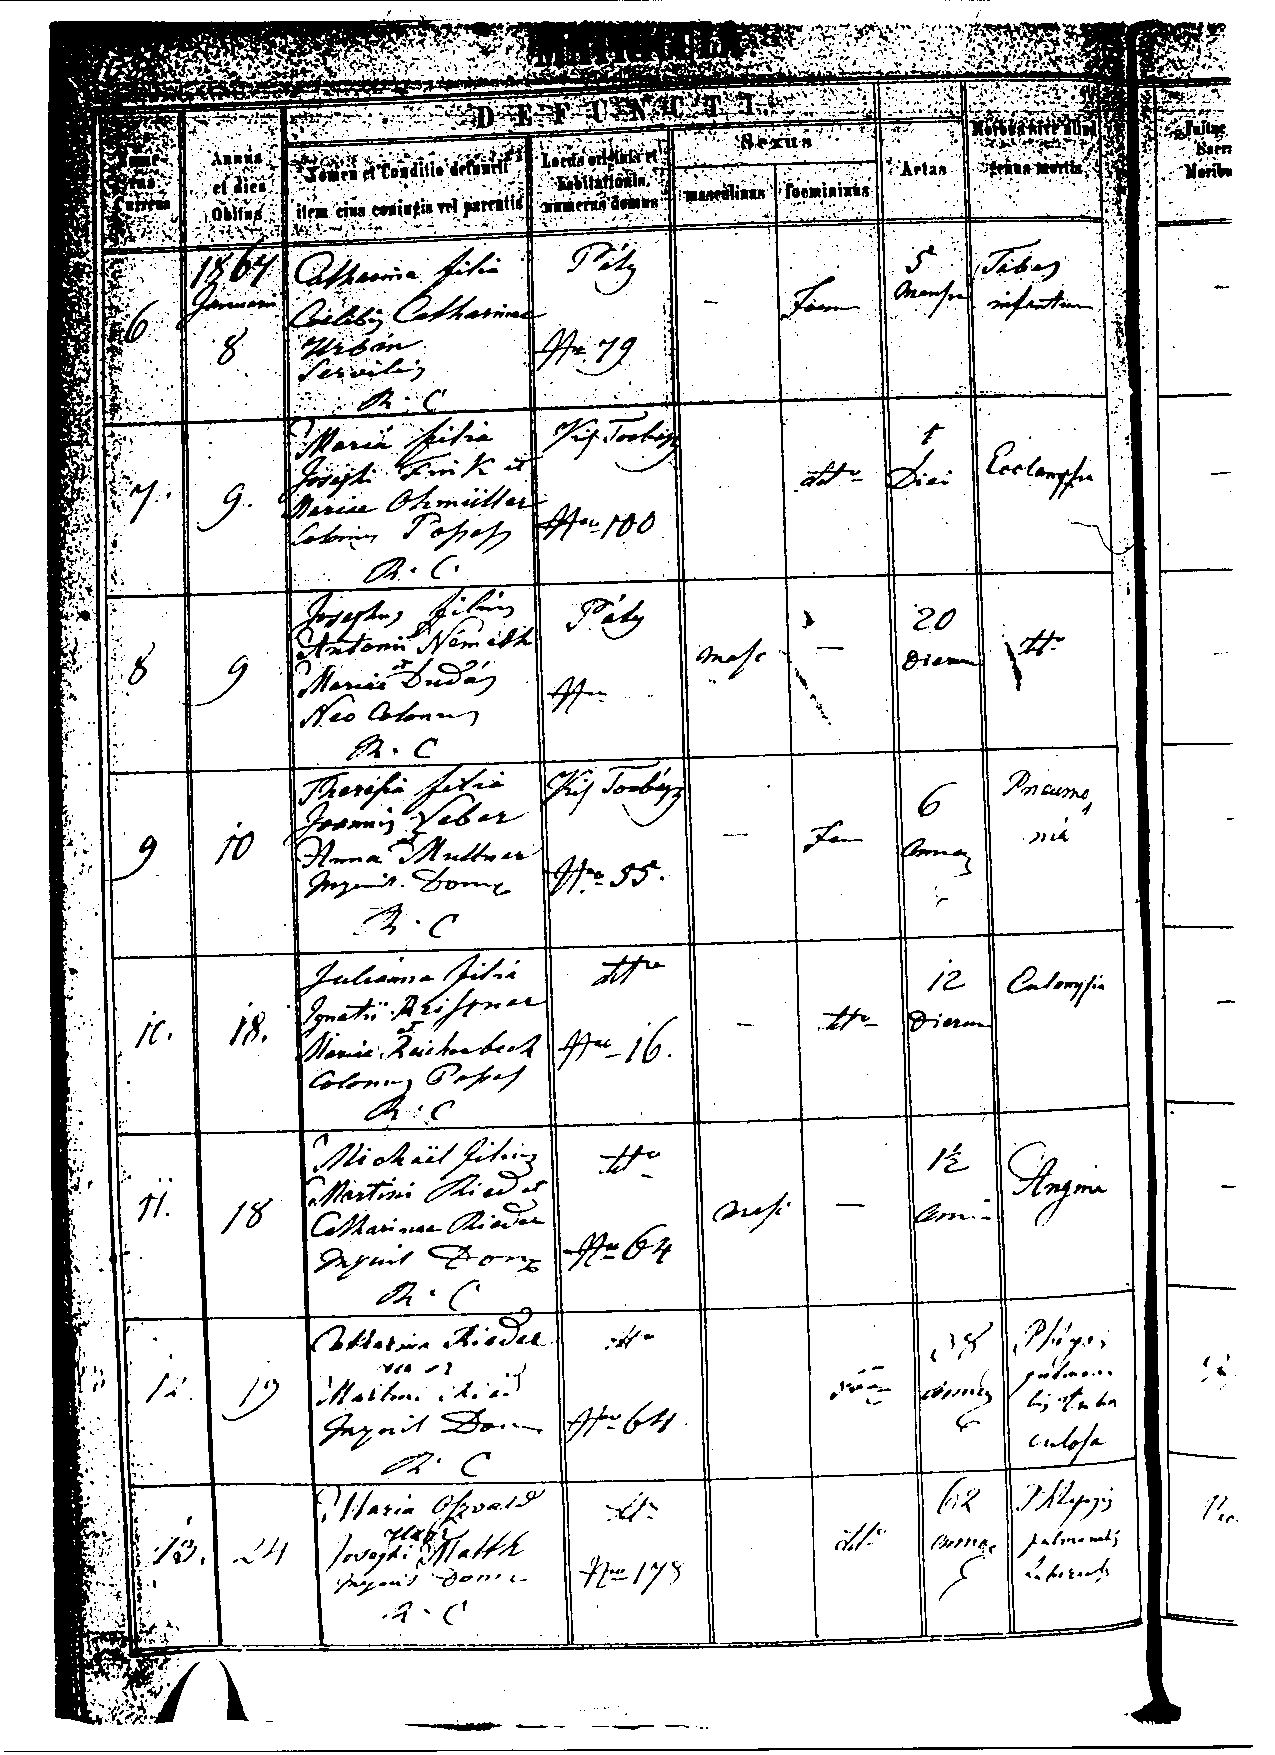 MATRICULA
DEFUNCTI.
Nume-
rus
currens
Annus
et dies
Obitus
Nomen et Conditio defuncti
item eius coniugis vel parentis
Locus originis et
habitationis,
numerus domus
Sexus
masculinus
foemininus
Aetas
Morbus sive aliud
genus mortis
6
1864
Januarii
8
Catharina filia
Caelebis Catharinae
Urban
Servilis
R. C
Páty
Nro 79
-
Foem
5
Mens
Tabes
infantum
7.
9.
Maria filia
Josephi Fink et
Mariae Ohmüller
Colonus
R. C.
Kis Torbágy
Nro 100
dtto
1
Diei
Eeclampsia
8
9
Josephus filius
Antonii Németh
et
Mariae Dudás
Neo Colonus
R. C
Páty
Nro
masc
-
20
Dierum
tto
9
10
Theresia filia
Joannis Veber
et
Anna Multner
Inquil. Dom
R. C
Kis Torbágy
Nro 55.
-
Foem
6
Annor
Pneumo
nia
10.
18.
Julianna filia
Ignatii
et
Mariae Reichenbech
Colonus
R. C
dtto
Nro 16.
-
tto
12
Dierum
11.
18
Michaël filius
Martini Ried et
Catharinae Rieder
Inquil Dom
R. C
tto
Nro 64
masc
-
1½
Anni
Angina
12.
19
Catharina Rieder
Martini Ried
Inquil Dom
R. C
dtto
Nro 64
38
Annor
Phtysis
pulmona
lis Tuber
culosa
13.
24
Maria Oszvald
Josephi Matth
Inquil Dom
R. C
dtto
Nro 178
dtto
62
Annor
Phtysis
pulmonalis